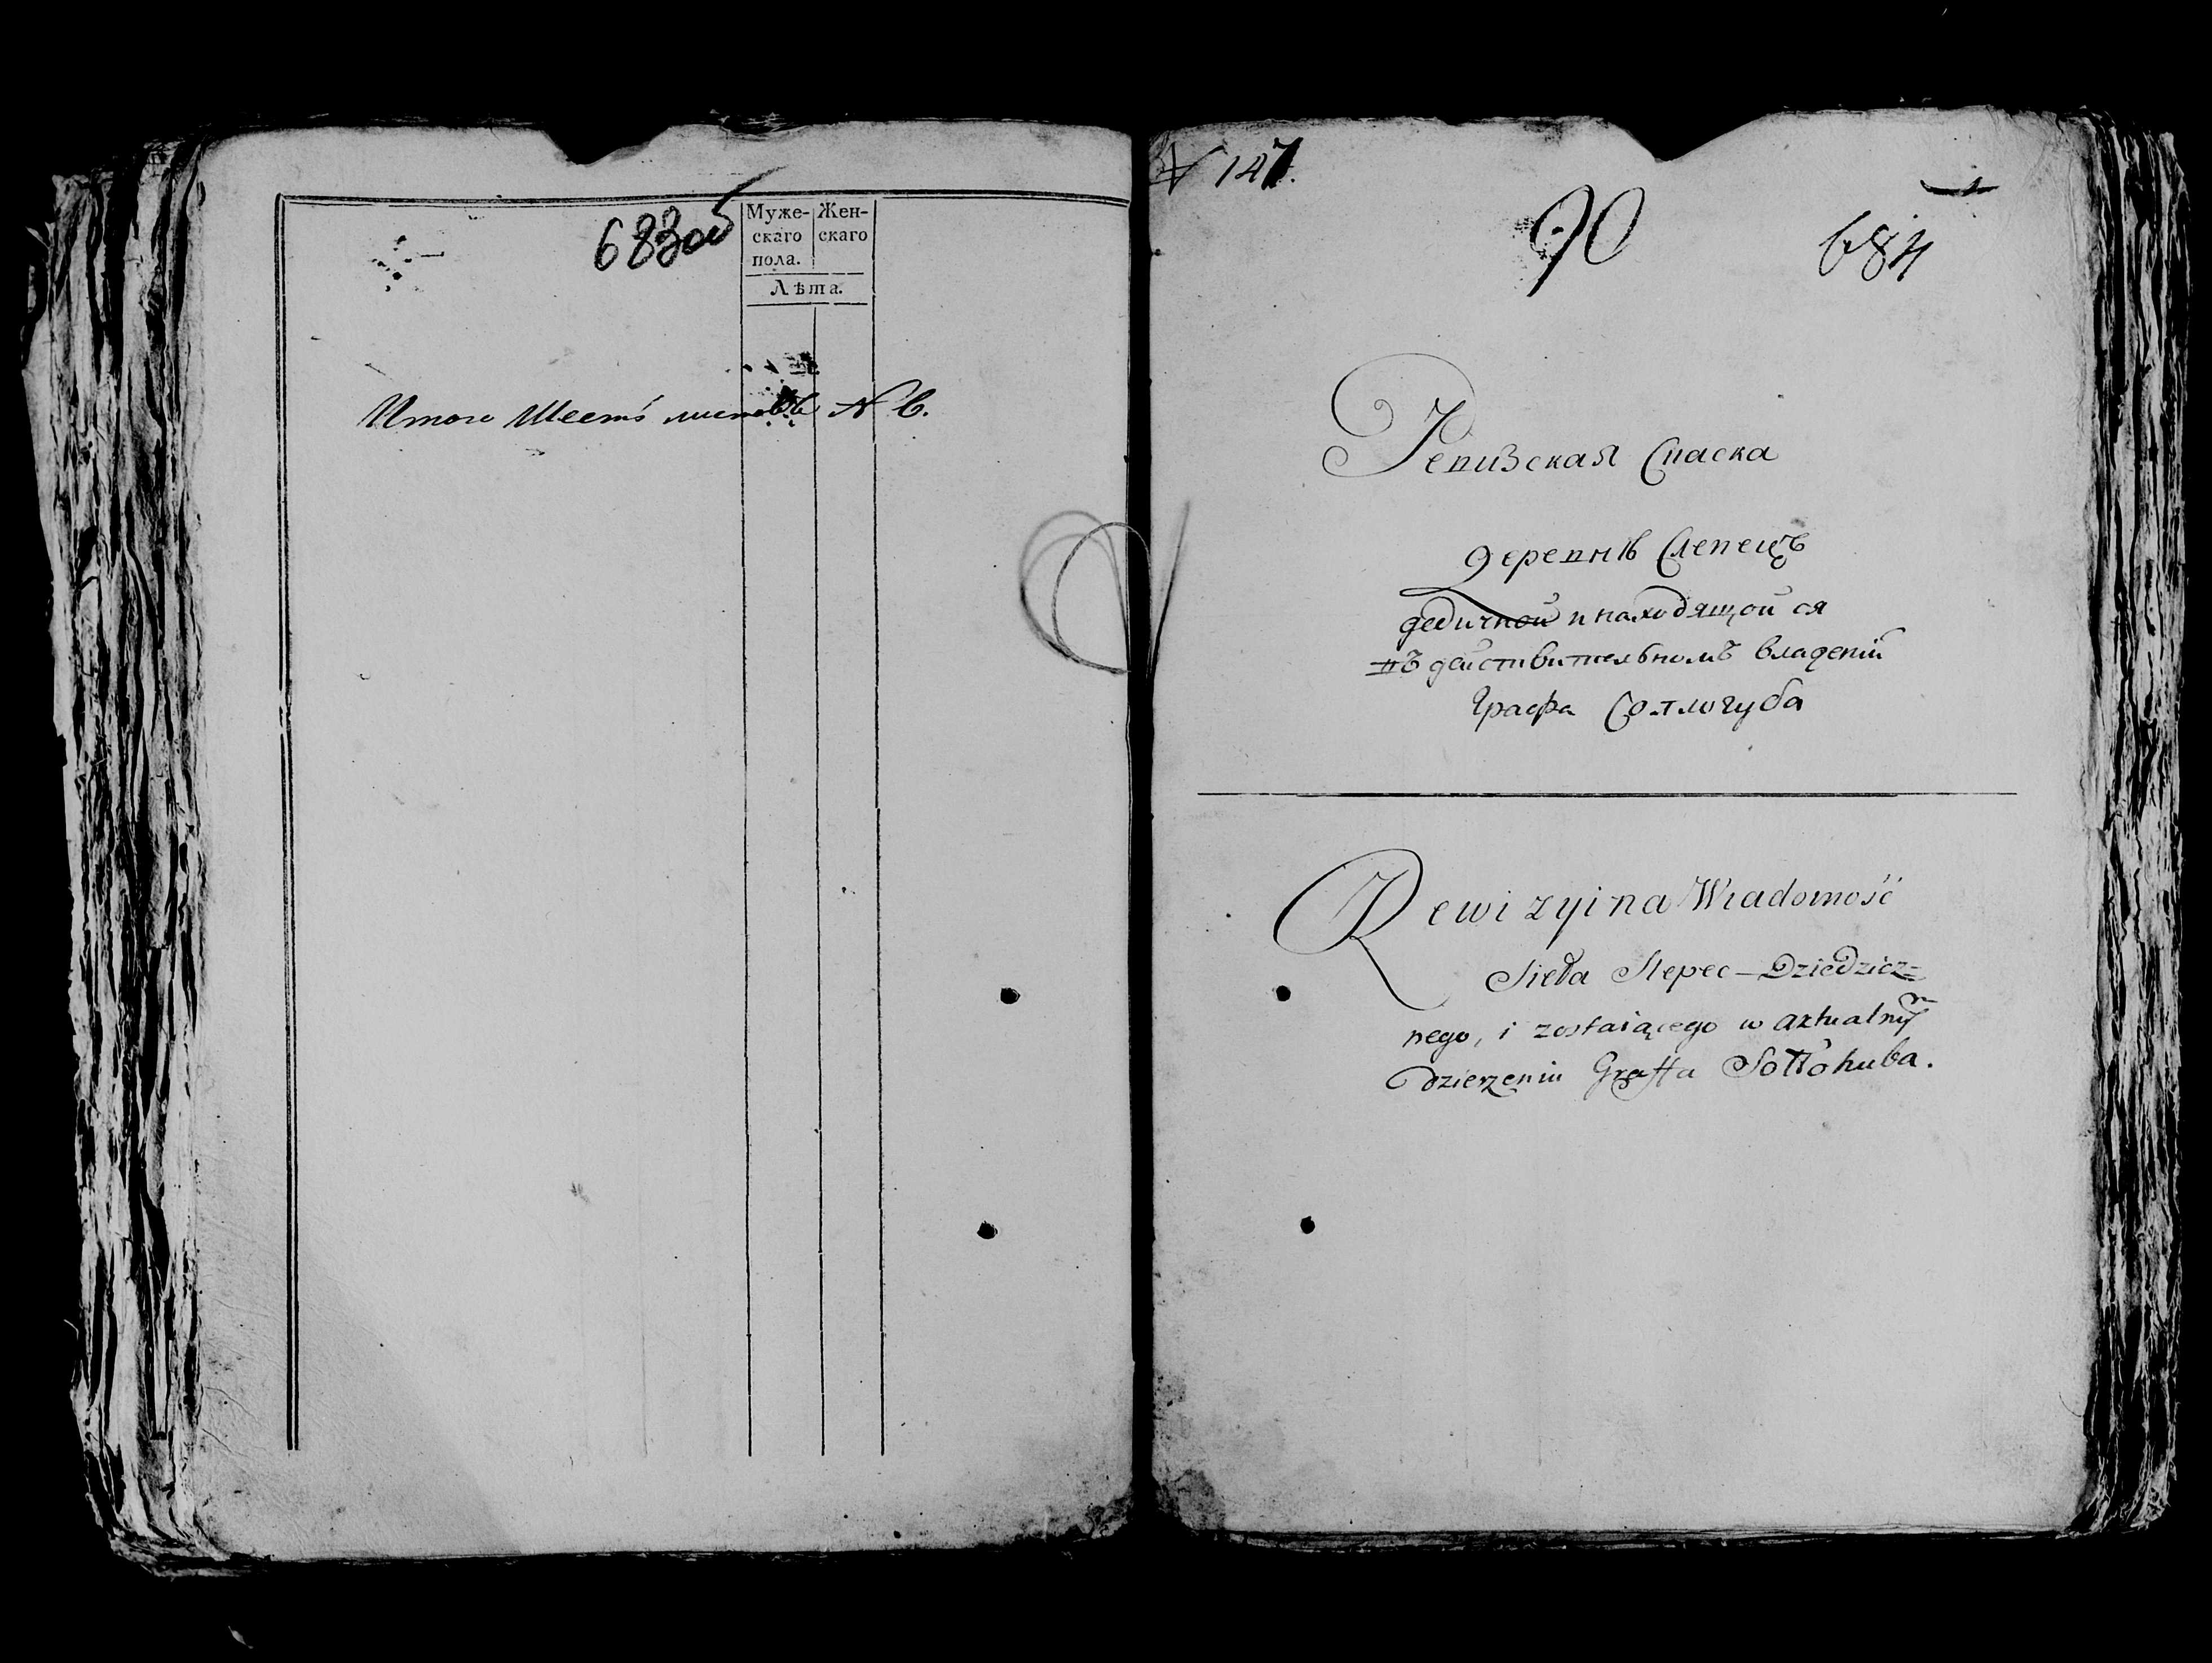 683об
Муже- Жен-
скаго скаго
пола.
Лѣта.
Итого Шесть листовъ № 6.
№ 147.
90
684
Ревизская Спаска
деревнѣ Слепецъ
дедичной и находящой ся
въ действительномъ владении
Графа Соллогуба
Rewizyina Wiadomość
Sieła Slepec – Dziedzicz=
nego, i zostaiącego w aktualnym
Dzierzeniu Graffa Sołłohuba.